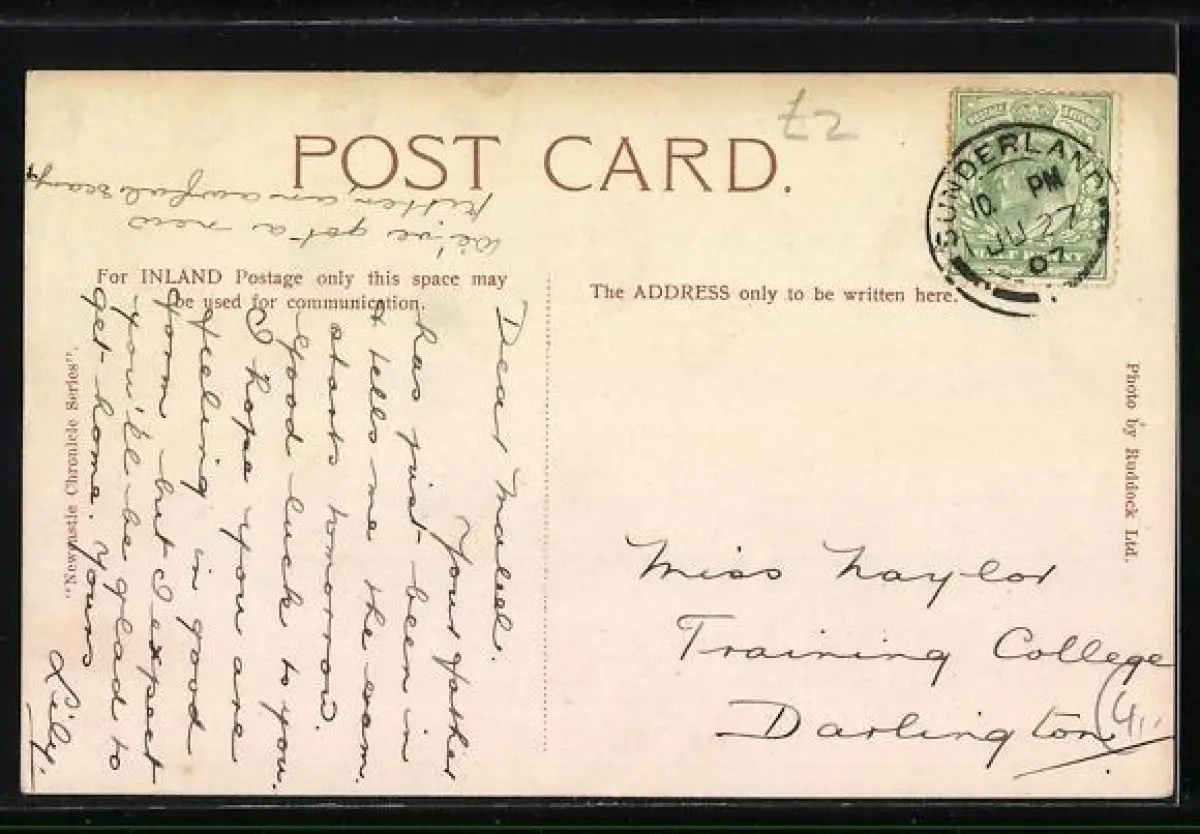 POST CARD.
£2
SUNDERLAND
10. PM
JU 27
07
For INLAND Postage only this space may
be used for communication.
The ADDRESS only to be written here.
Dear Mabel.
Your father
has just been in
& tells me the exam.
starts tomorrow.
Good luck to you.
I hope you are
feeling in good
form but I expect
you'll be glad to
get home. Yours
Lily.
We've got a new
kitten, am awfuls
Miss Naylor
Training College
Darlington
"Newcastle Chronicle Series".
Photo by Ruddock Ltd.